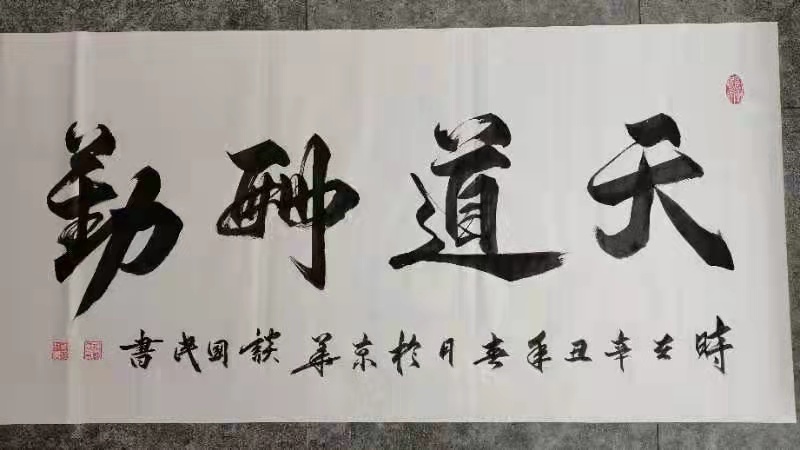 天道酬勤
時在辛丑年春月於京華談國民書